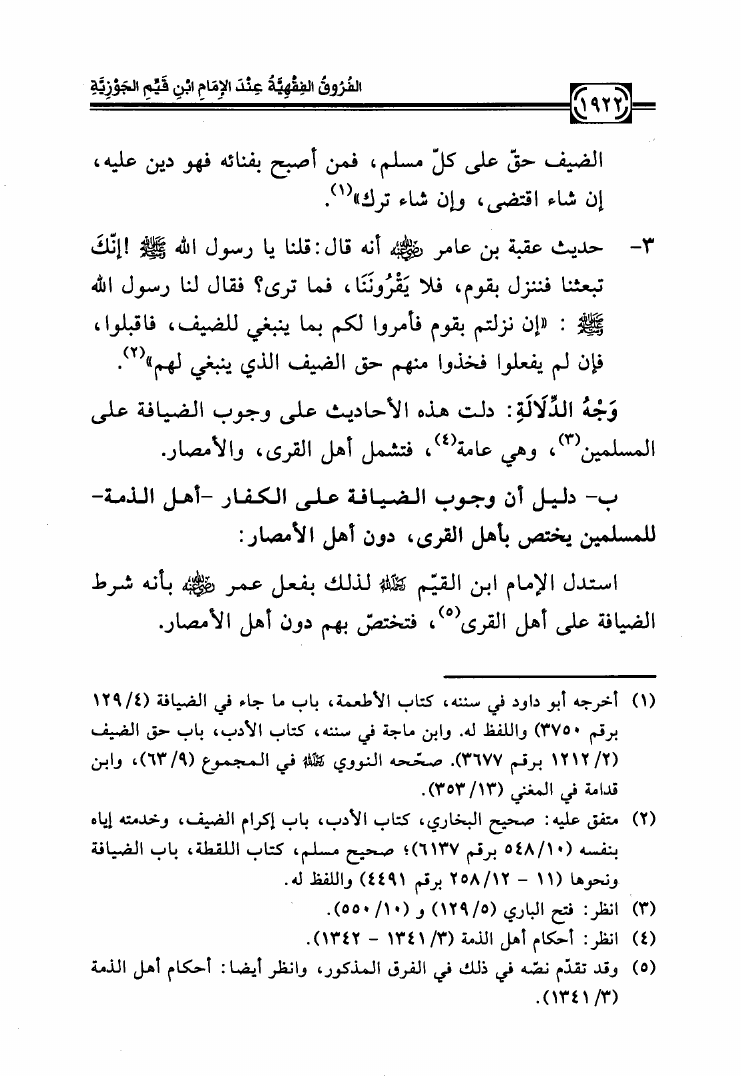 الفُرُوقُ الفِقْهِيَّةُ عِنْدَ الإِمَامِ ابْنِ قَيِّمِ الجَوْزِيَّةِ
١٩٢٢
الضيف حقّ على كلّ مسلم، فمن أصبح بفنائه فهو دين عليه،
إن شاء اقتضى، وإن شاء ترك»(١).
٣- حديث عقبة بن عامر رضي الله عنه أنه قال: قلنا يا رسول الله ﷺ !إنّكَ
تبعثنا فننزل بقوم، فلا يَقْرُونَنَا، فما ترى؟ فقال لنا رسول الله
ﷺ : «إن نزلتم بقوم فأمروا لكم بما ينبغي للضيف، فاقبلوا،
فإن لم يفعلوا فخذوا منهم حق الضيف الذي ينبغي لهم»(٢).
وَجْهُ الدِّلَالَةِ: دلت هذه الأحاديث على وجوب الضيافة على
المسلمين(٣)، وهي عامة(٤)، فتشمل أهل القرى، والأمصار.
ب- دليل أن وجوب الضيافة على الكفار -أهل الذمة-
للمسلمين يختص بأهل القرى، دون أهل الأمصار:
استدل الإمام ابن القيّم رحمه الله لذلك بفعل عمر رضي الله عنه بأنه شرط
الضيافة على أهل القرى(٥)، فتختصّ بهم دون أهل الأمصار.
(١) أخرجه أبو داود في سننه، كتاب الأطعمة، باب ما جاء في الضيافة (٤/ ١٢٩
برقم ٣٧٥٠) واللفظ له. وابن ماجة في سننه، كتاب الأدب، باب حق الضيف
(٢/ ١٢١٢ برقم ٣٦٧٧). صحّحه النووي رحمه الله في المجموع (٩/ ٦٣)، وابن
قدامة في المغني (١٣/ ٣٥٣).
(٢) متفق عليه: صحيح البخاري، كتاب الأدب، باب إكرام الضيف، وخدمته إياه
بنفسه (١٠/ ٥٤٨ برقم ٦١٣٧)؛ صحيح مسلم، كتاب اللقطة، باب الضيافة
ونحوها (١١ - ١٢/ ٢٥٨ برقم ٤٤٩١) واللفظ له.
(٣) انظر: فتح الباري (٥/ ١٢٩) و (١٠/ ٥٥٠).
(٤) انظر: أحكام أهل الذمة (٣/ ١٣٤١ - ١٣٤٢).
(٥) وقد تقدّم نصّه في ذلك في الفرق المذكور، وانظر أيضا: أحكام أهل الذمة
(٣/ ١٣٤١).